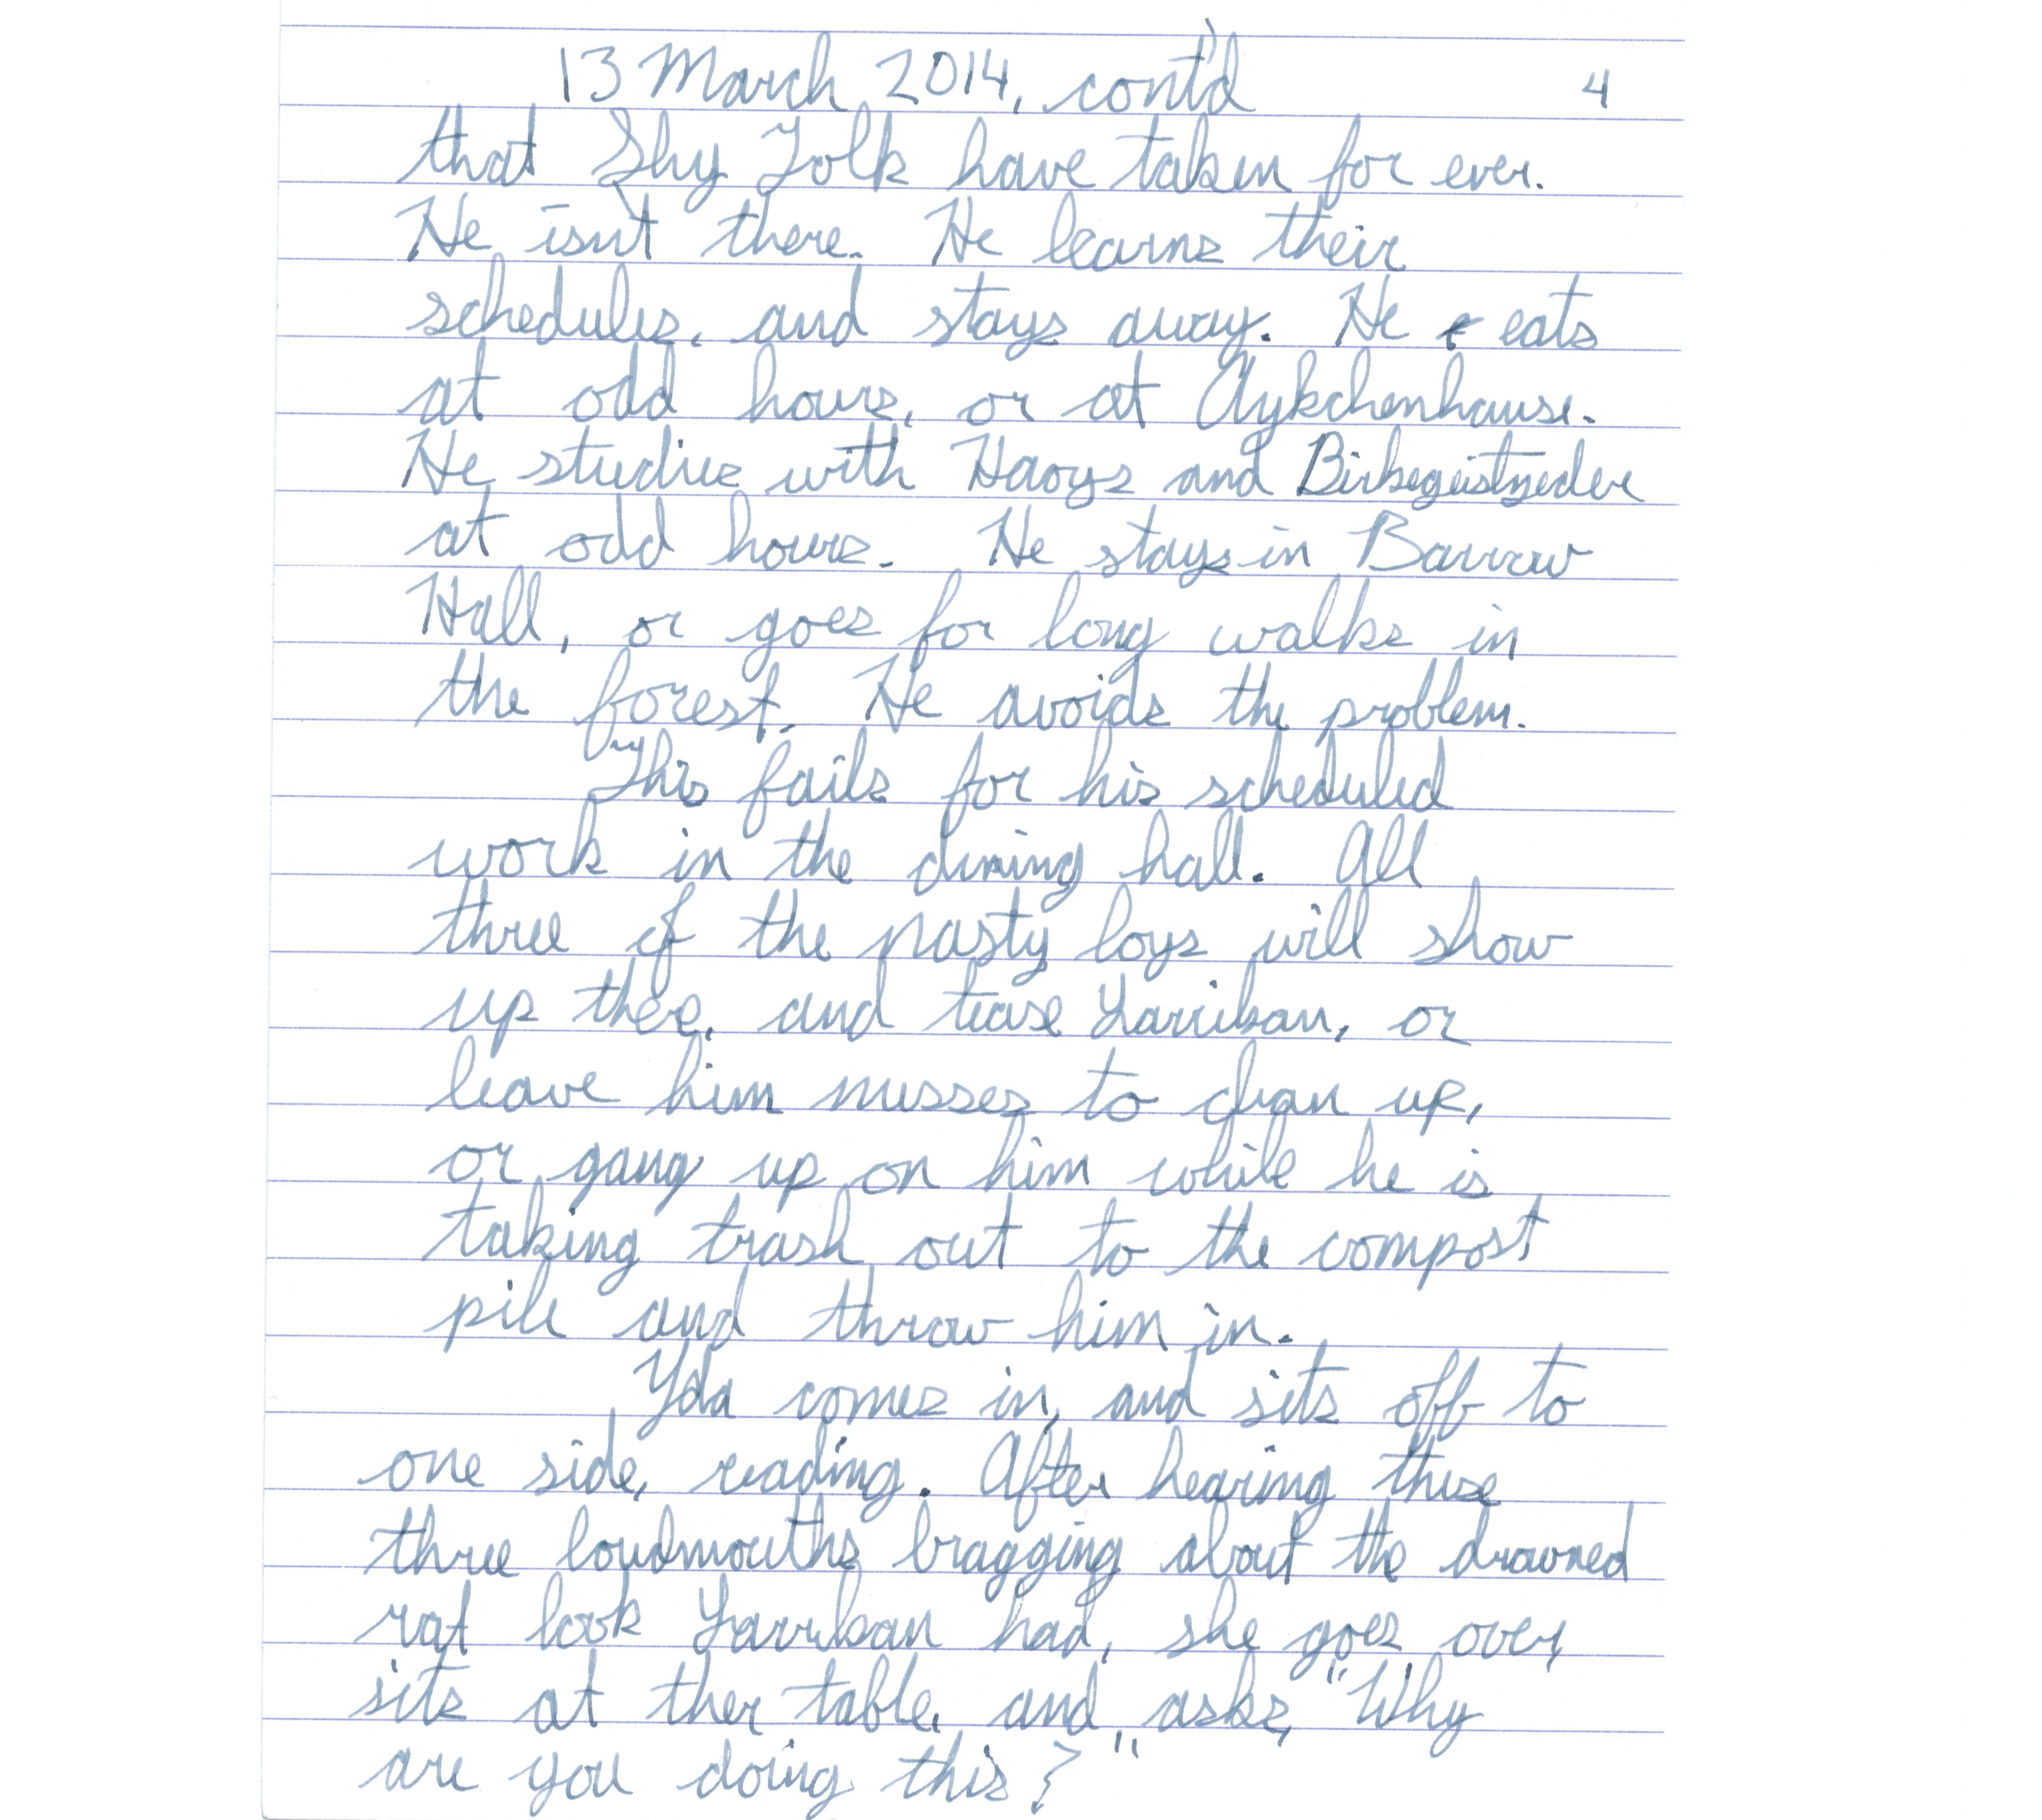 13 March 2014, cont'd 4
that Shy Folk have taken for ever.
He isn't there. He learns their
schedules, and stays away. He e eats
at odd hours, or at Aykchenhause.
He studies with Haoys and
at odd hours. He stays in Barrow
Hall, or goes for long walks in
the forest. He avoids the problem.
This fails for his scheduled
work in the dining hall. All
three of the nasty boys will show
up there, and tease Larriban, or
leave him messes to clean up,
or gang up on him while he is
taking trash out to the compost
pile and throw him in.
Yda comes in, and sits off to
one side, reading. After hearing these
three loudmouths bragging about the drowned
rat look Larriban had, she goes over,
sits at ther table, and asks, "Why
are you doing this?"